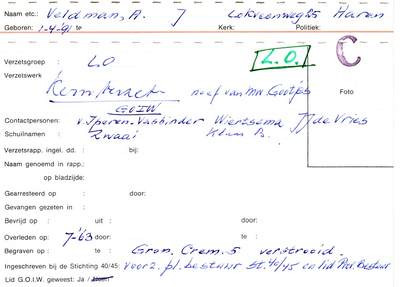 Naam etc.: Veldman, A. J Lokveenweg 25 Haren
Geboren: 1-4-91 Kerk: Politiek:
Verzetsgroep : L.O L.O. C
Verzetswerk
Kerntract neef van Mw. Gootjes Foto
GOIW
Contactpersonen: v. Iperen. Vasbinder Wiertsema JJ de Vries
Schuilnamen : Zwaai Klaas B.
Verzetsrapp. ingel. dd. : bij:
Naam genoemd in rapp.:
op bladzijde:
Gearresteerd op : door:
Gevangen gezeten in :
Bevrijd op : uit : door:
Overleden op : 7-'63 door: te :
Begraven op : te : Gron. Crem. 5 verstrooid.
Ingeschreven bij de Stichting 40/45: voorz. pl. bestuur St. 40/45 en lid Prov. Bestuur
Lid G.O.I.W. geweest: Ja / Neen